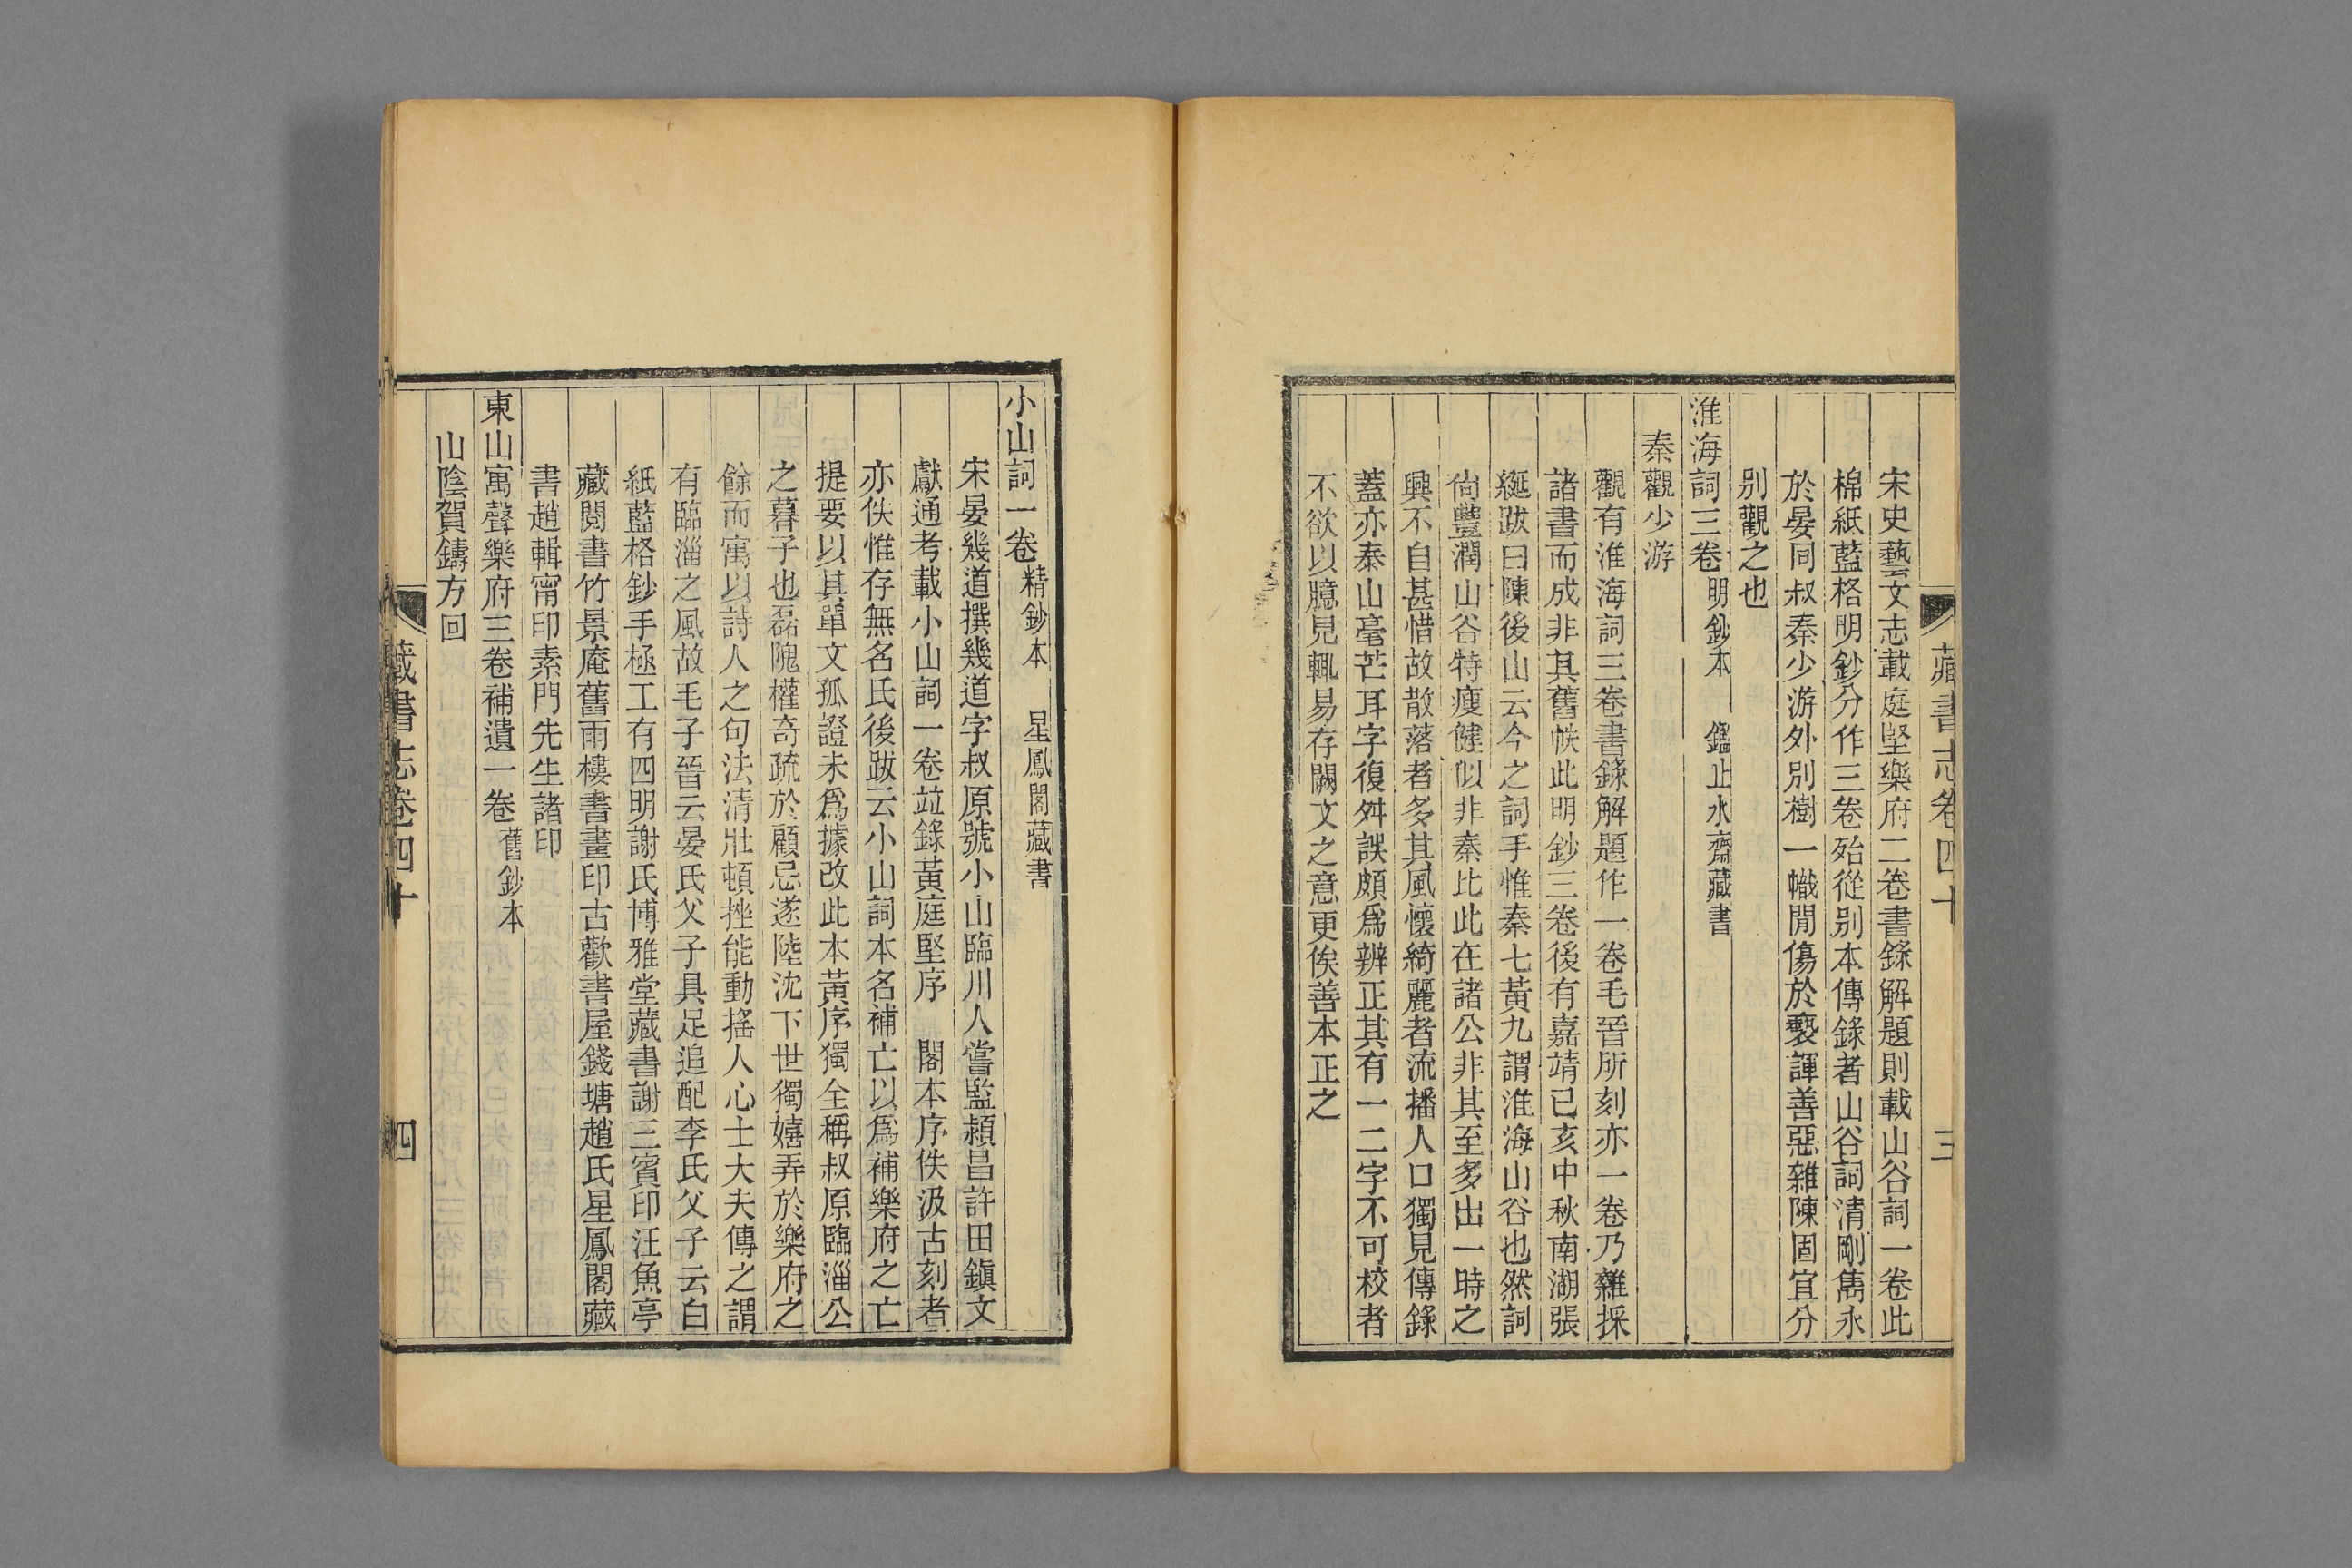 藏書志卷四十
三
宋史藝文志載庭堅樂府二卷書錄解題則載山谷詞一卷此
棉紙藍格明鈔分作三卷殆從別本傳錄者山谷詞清剛雋永
於晏同叔秦少游外別樹一幟閒傷於褻諢善惡雜陳固宜分
別觀之也
淮海詞三卷 明鈔本 鑑止水齋藏書
秦觀少游
觀有淮海詞三卷書錄解題作一卷毛晉所刻亦一卷乃雜採
諸書而成非其舊帙此明鈔三卷後有嘉靖已亥中秋南湖張
綖跋曰陳後山云今之詞手惟秦七黃九謂淮海山谷也然詞
尙豐潤山谷特瘦健似非秦比此在諸公非其至多出一時之
興不自甚惜故散落者多其風懷綺麗者流播人口獨見傳錄
蓋亦泰山毫芒耳字復舛誤頗爲辨正其有一二字不可校者
不欲以臆見輒易存闕文之意更俟善本正之
小山詞一卷 精鈔本 星鳳閣藏書
宋晏幾道撰幾道字叔原號小山臨川人嘗監潁昌許田鎭文
獻通考載小山詞一卷竝錄黃庭堅序 閣本序佚汲古刻者
亦佚惟存無名氏後跋云小山詞本名補亡以爲補樂府之亡
提要以其單文孤證未爲據改此本黃序獨全稱叔原臨淄公
之暮子也磊隗權奇疏於顧忌遂陸沈下世獨嬉弄於樂府之
餘而寓以詩人之句法清壯頓挫能動搖人心士大夫傳之謂
有臨淄之風故毛子晉云晏氏父子具足追配李氏父子云白
紙藍格鈔手極工有四明謝氏博雅堂藏書謝三賓印汪魚亭
藏閱書竹景庵舊雨樓書畫印古歡書屋錢塘趙氏星鳳閣藏
書趙輯甯印素門先生諸印
東山寓聲樂府三卷補遺一卷 舊鈔本
山陰賀鑄方回
藏書志卷四十
四